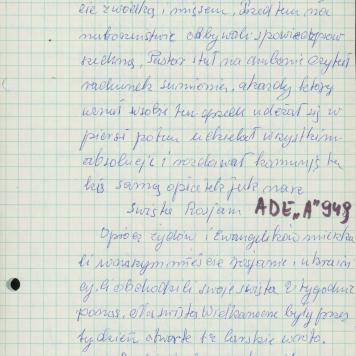 cie z wódką i mięsem, Przed tem na
nabożeństwie odbywali spowiedź pow
szechną, Pastor stał na ambonie czytał
rachunek sumienia, a każdy który
uznał w sobie ten grzech uderzał się w
piersi potem udzielał wszystkim
absolucji i rozdawał komunię ta
ką samą opłatek jak nasz
Święta Rosjan ADE „A" 949
Oprócz żydów i Ewangelików mieszka
li w naszym mieście Rosjanie i ukraiń
cy. ci obchodzili swoje święta 2 tygodnie
po nas. Na święta Wielkanocne były przez
tydzień otwarte te carskie wrota.